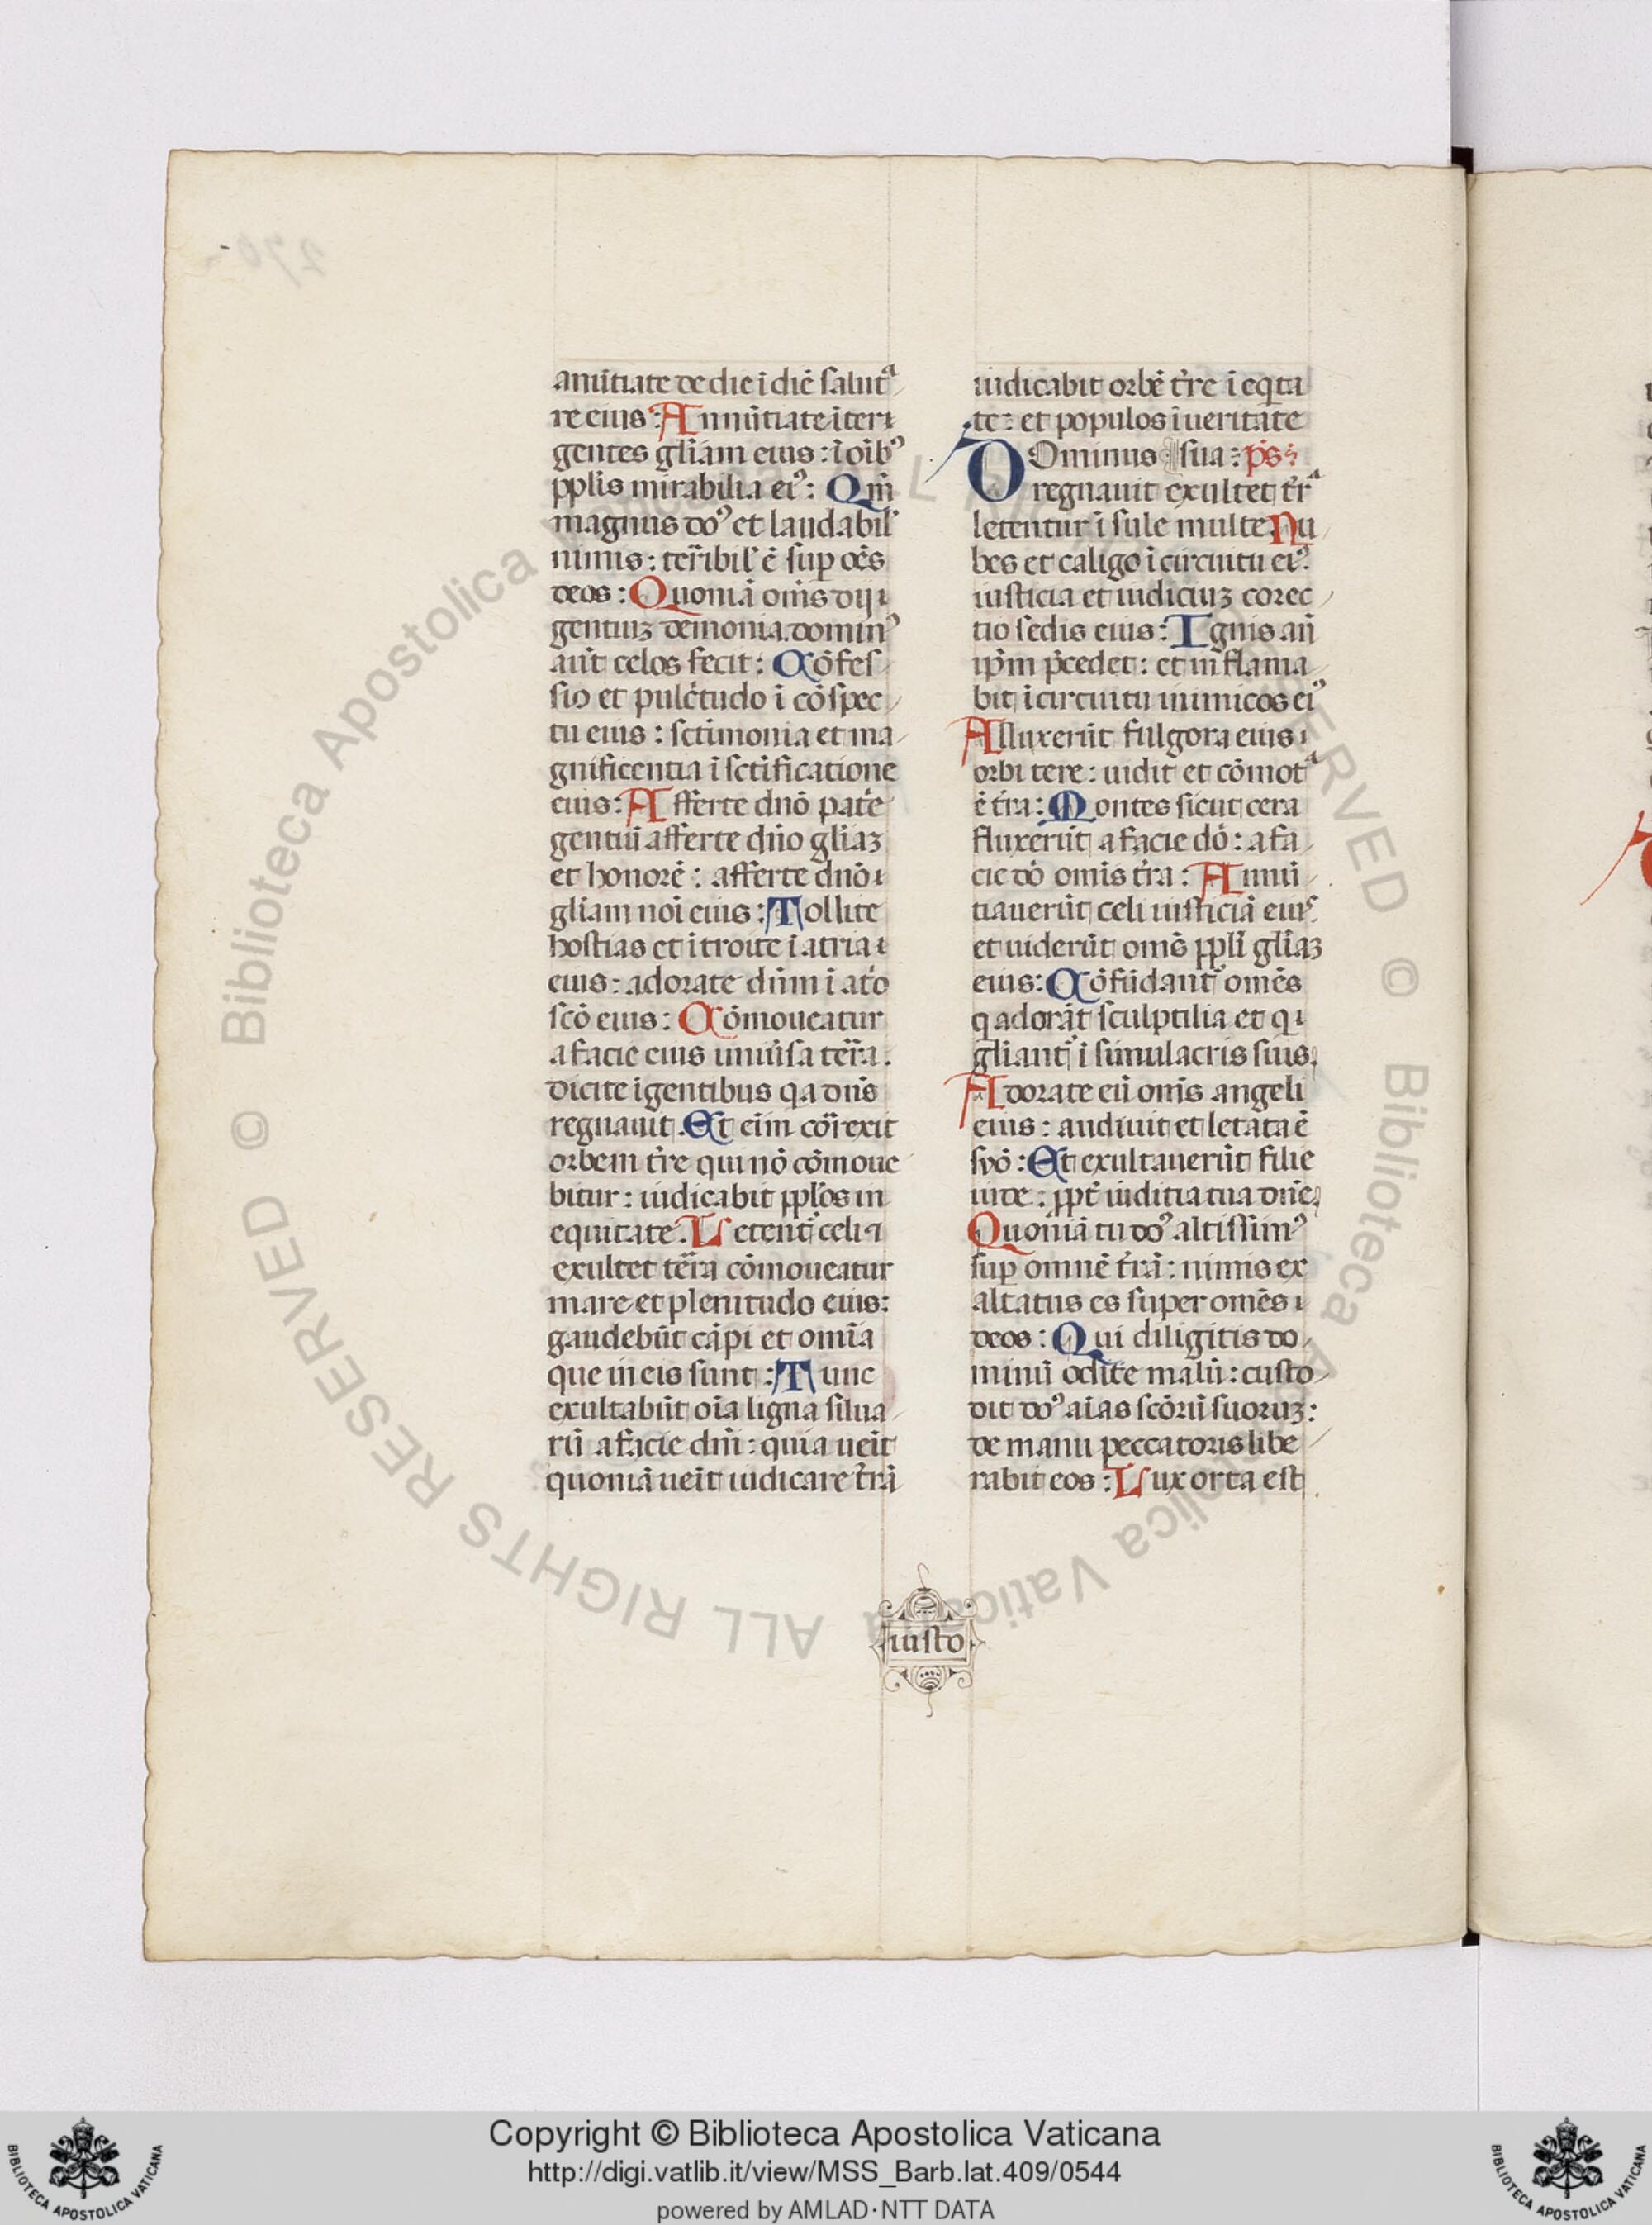 anūtiate de die ī diē salutᵃ
re eius: Annūtiate īter
gentes gl̄iam eius: ī oīb⁹
pplīs mirabilia ei⁹: Qm̄
magnus do⁹ et laudabil'
nimis: terībil' ē sup oēs
deos: Quoniā om̄s dij
gentiuꝫ demonia. domin⁹
aūt celos fecit: Cōfes
sio et pulc̄tudo ī cōspec
tu eius: sct̄imonia et ma
gnificentia ī sct̄ificatione
eius: Afferte dnō pat̄e
gentiū afferte dn̄o gl̄iaꝫ
et honorē: afferte dnō
gl̄iam noī eius: Tollite
hostias et ītroite ī atria
eius: adorate dn̄m ī at̄o
scō eius: Cōmoueatur
a facie eius uniūsa ter̄a.
dicite ī gentibus qa dn̄s
regnauit. Et eīm cor̄exit
orbem t̄re qui nō cōmoue
bitur: iudicabit ppl̄os in
equitate. Letent᷑ celi ⁊
exultet ter̄a cōmoueatur
mare et plenitudo eius:
gaudebūt cāpi et omīa
que in eis sunt: Tunc
exultabūt oīa ligna silua
rū a facie dn̄i: quia ueīt
quoniā ueīt iudicare t̄rā
iudicabit orbē t̄re ī eqta
te: et populos ī ueritate
DOminus sua: ps̄
regnauit exultet t̄rᵃ
letentur ī sule multe Nu
bes et caligo ī circuitu ei⁹:
iusticia et iudiciuꝫ corec
tio sedis eius: Ignis an̄
ip̄m p̄cedet: et īnflama
bit ī circuitu inimicos ei⁹
Alluxerūt fulgora eius
orbi tere: uidit et cōmotᵃ
ē t̄ra: Montes sicut cera
fluxerūt a facie dō: a fa
cie dō omīs t̄ra: Annū
tiauerūt celi iusticiā eius
et uiderūt omēs pplī gl̄iaꝫ
eius: Cōfūdant᷑ omēs
q adorāt sculptilia et q
gl̄iant᷑ ī simulacris suis:
Adorate eū omīs angeli
eius: audiuit et letata ē
syō: Et exultauerūt filie
iude: ppt̄ iuditia tua dn̄e
Quoniā tu do⁹ altissim⁹
sup omnē t̄rā: nimis ex
altatus es super omēs
deos: Qui diligitis do
minū odite malū: custo
dit do⁹ aīas scōrū suoruꝫ:
de manu peccatoris libe
rabit eos: Lux orta est
iusto
© Biblioteca Apostolica Vaticana ALL RIGHTS RESERVED © Biblioteca Apostolica Vaticana ALL RIGHTS RESERVED
Copyright © Biblioteca Apostolica Vaticana
http://digi.vatlib.it/view/MSS_Barb.lat.409/0544
powered by AMLAD·NTT DATA
BIBLIOTECA APOSTOLICA VATICANA
BIBLIOTECA APOSTOLICA VATICANA